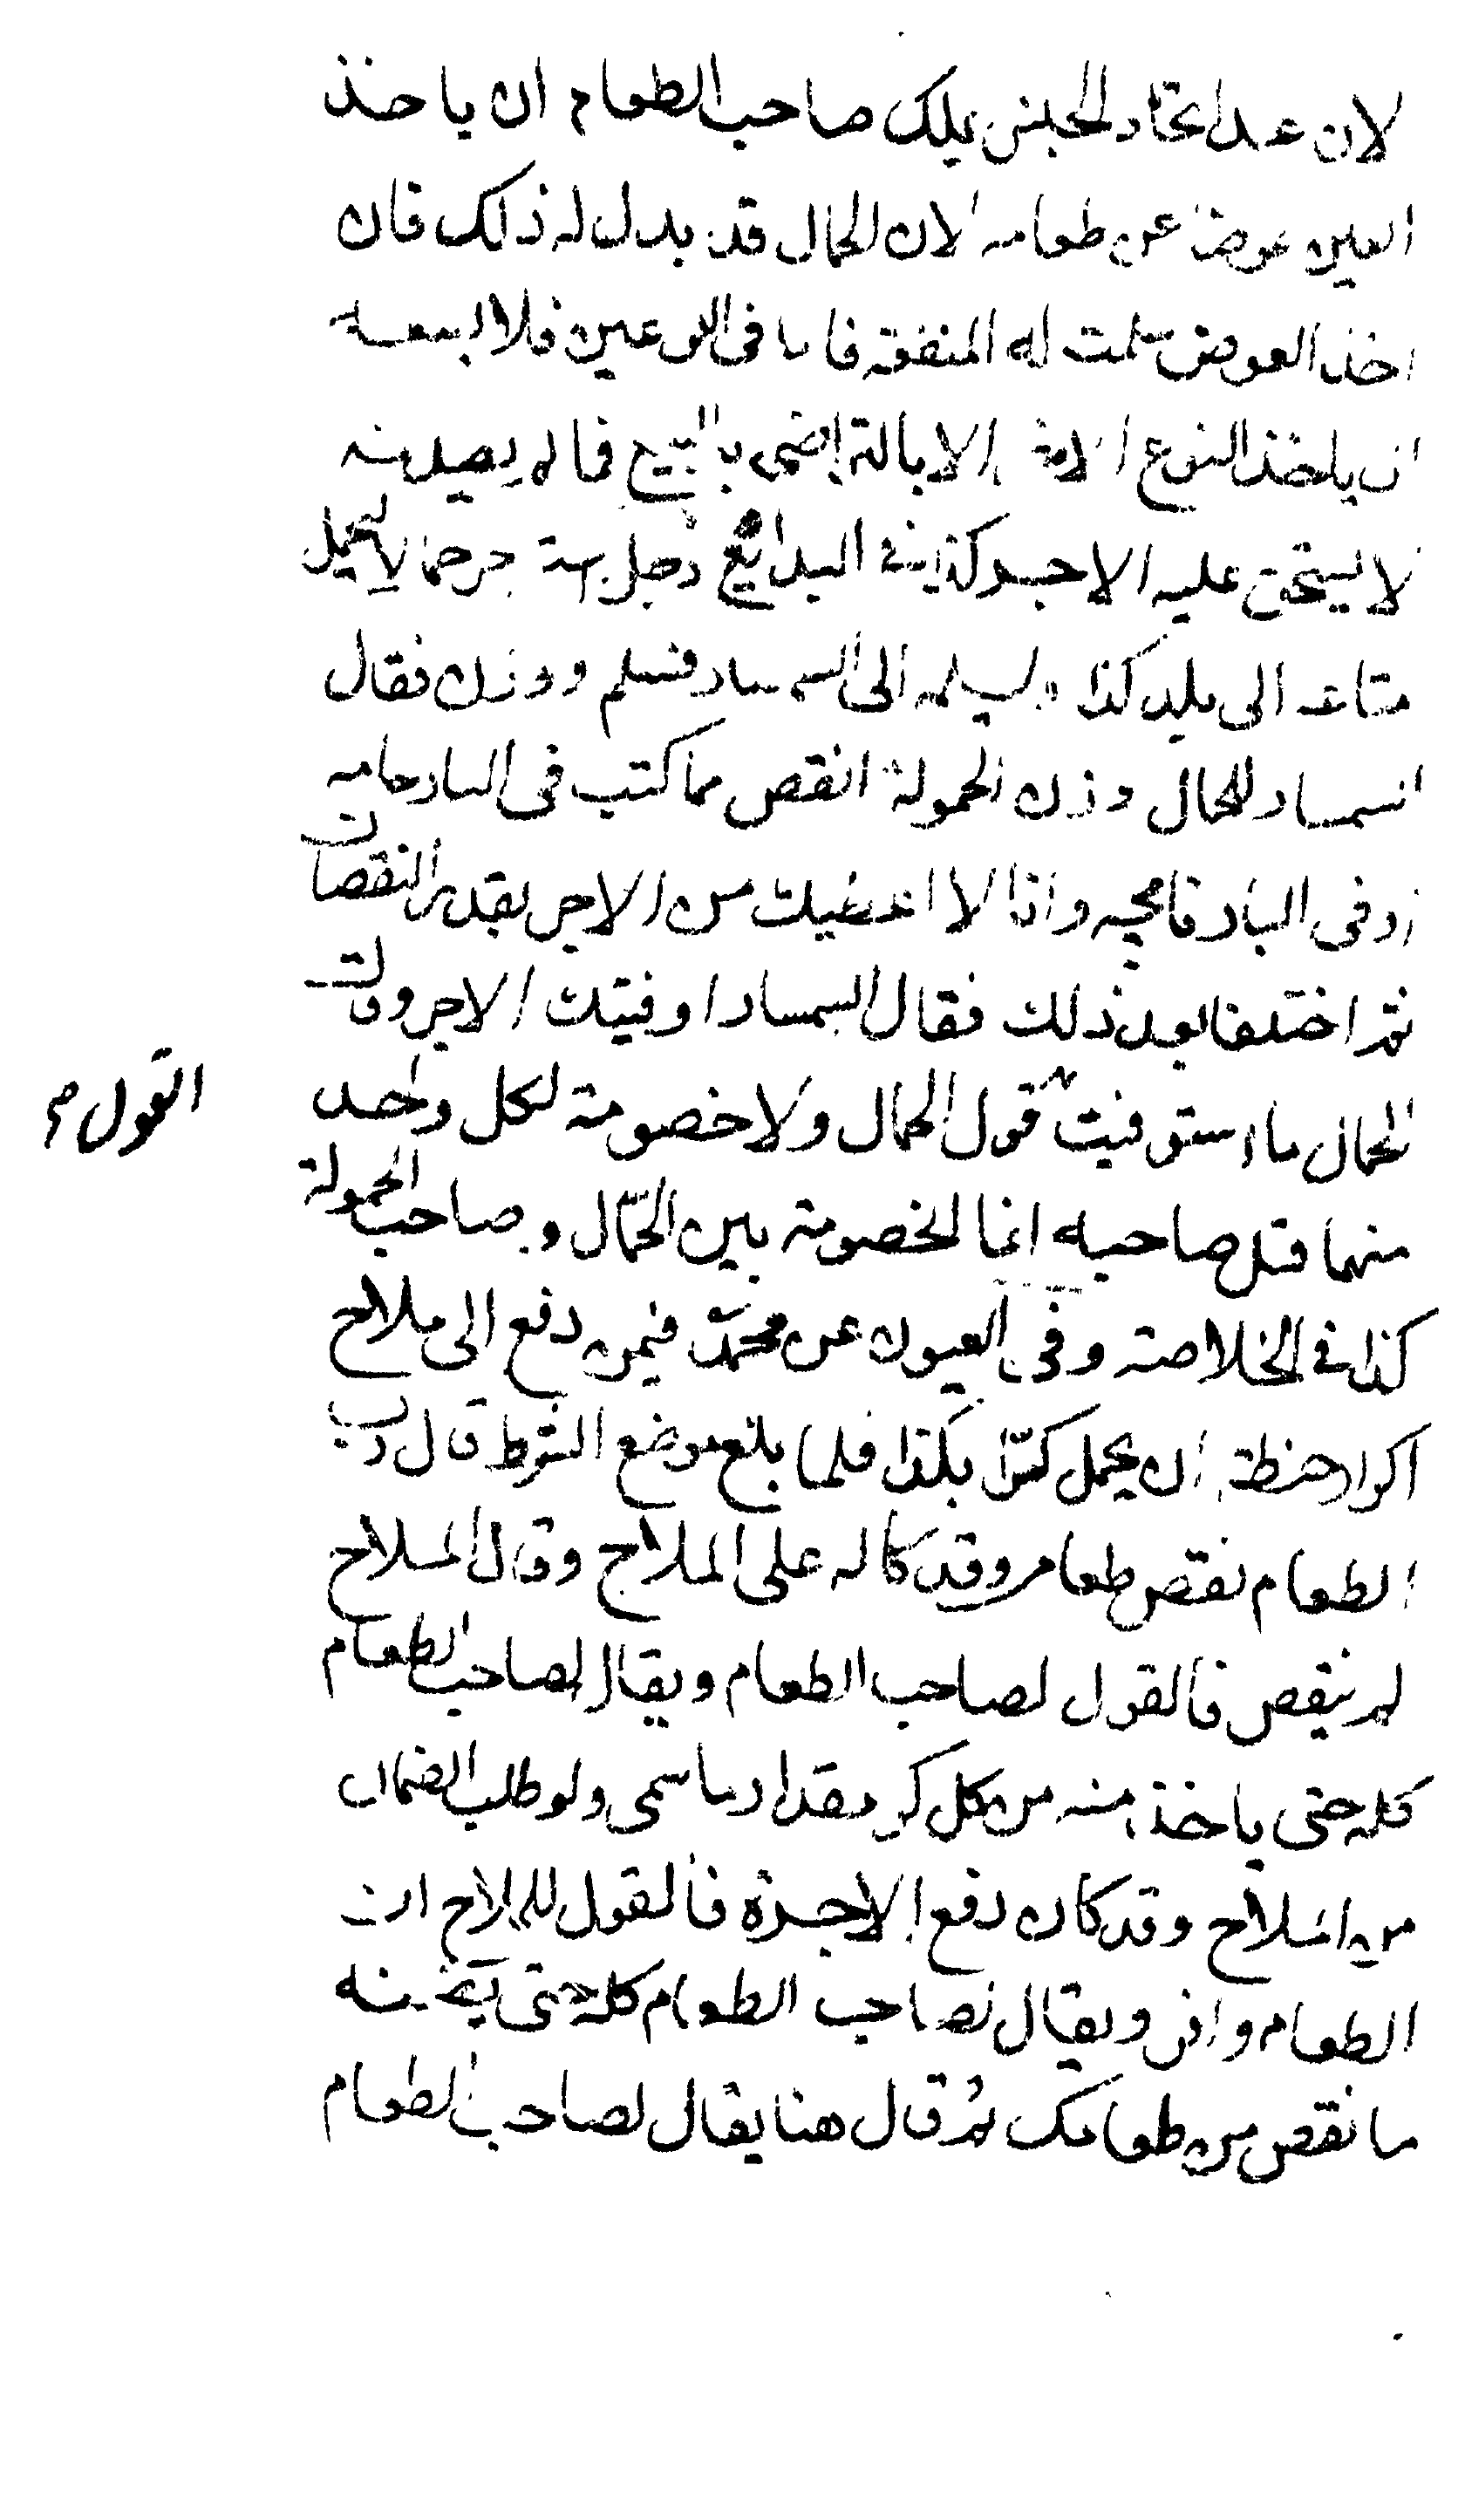 لان عند اتحاد الجنس يملك صاحب الطعام ان ياخذ
العين عوضا عن طعامه لان الحمال قد بدل له ذلك فان
اخذ العوض سلمت له المنفعة فاما فى النوعين فلا يسعه
ان ياخذ النوع الا بالتراضى بالبيع فما لم يصل منه
لا يستحق عليه الاجر كذا فى البدائع رجل استاجر حمالا ليحمل
متاعه الى بلد كذا ويسلمه الى السمسار فسلم ووزن فقال
السمسار للحمال وزن الحمولة انقص مما كتب فى البارجامه
او فى البارنامجه وانا لا اعطيك من الاجر بقدر النقصان
ثم اختلفا بعد ذلك فقال السمسار اوفيتك الاجر وقال
الحمال ما استوفيت قول الحمال ولا خصومة لكل واحد
القول م
منهما قبل صاحبه انما الخصومة بين الحمّال وصاحب الحمولة
كذا فى الخلاصة وفى العيون عن محمّد فيمن دفع الى ملاح
اكرار حنطة ان يحمل كرّا بكذا فلما بلغ موضع الشرط قال رب
الطعام نقص طعامى وقد كاله على الملاح وقال الملاح
لم ينقص فالقول لصاحب الطعام ويقال لصاحب الطعام
كله حتى ياخذ منه من كل كر مقدار ما سمى ولو طلب الضمان
من الملاح وقد كان دفع الاجرة فالقول للملاح ان
الطعام وافر ويقال لصاحب الطعام كله حتى منه
ما نقص من طعامك ثم قال هنا يقال لصاحب الطعام